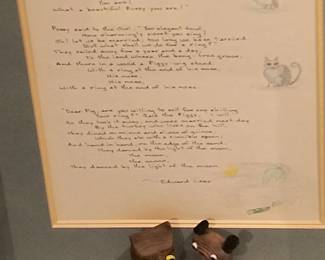 You are!
What a beautiful Pussy you are!"
Pussy said to the Owl, "You elegant fowl,
How charmingly sweet you sing!
Oh! let us be married, too long we have tarried:
But what shall we do for a ring?"
They sailed away for a year and a day,
To the land where the bong-tree grows,
And there in a wood a Piggy-wig stood
With a ring at the end of his nose,
His nose,
His nose,
With a ring at the end of his nose
"Dear Pig, are you willing to sell for one shilling
Your ring?" Said the Piggy, "I will."
So they took it away, and were married next day
By the turkey who lives on the hill.
They dined on mince and slices of quince,
Which they ate with a runcible spoon;
And hand in hand, on the edge of the sand,
They danced by the light of the moon,
The moon,
The moon,
They danced by the light of the moon
Edward Lear